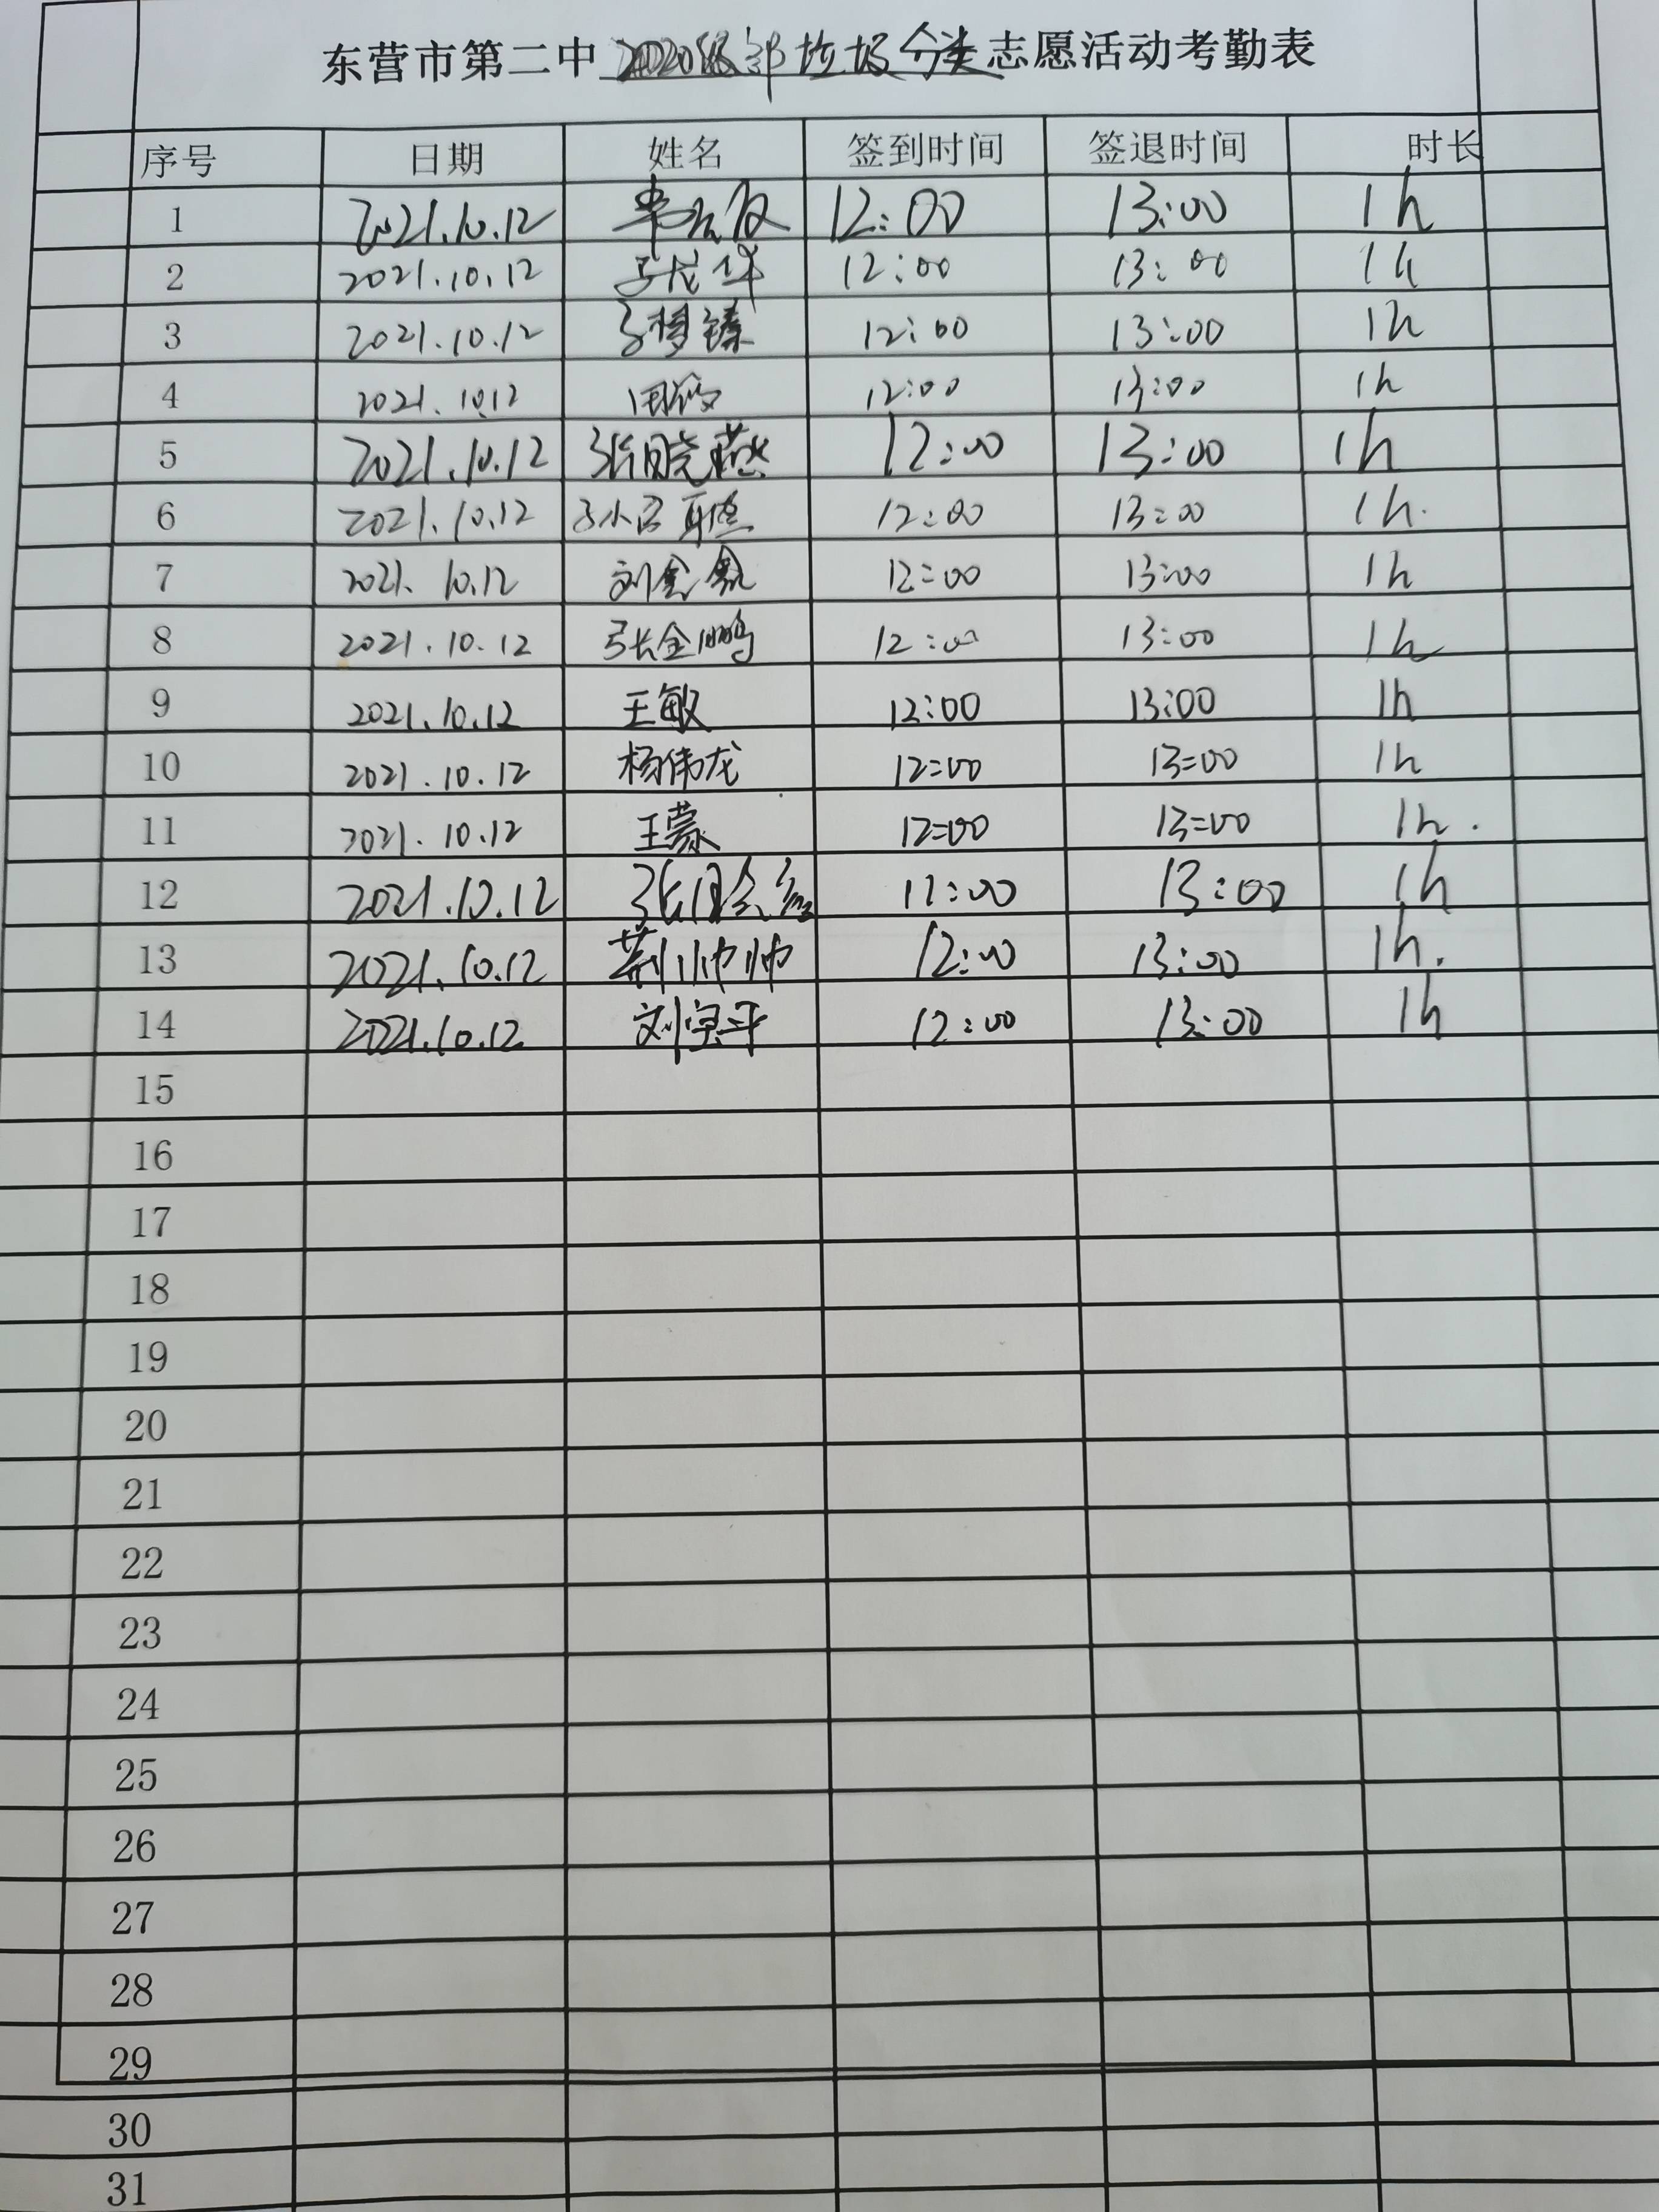 东营市第二中2020级部垃圾分类志愿活动考勤表
序号 日期 姓名 签到时间 签退时间 时长
1 2021.10.12 12:00 13:00 1h
2 2021.10.12 12:00 13:00 1h
3 2021.10.12 12:00 13:00 1h
4 2021.10.12 12:00 13:00 1h
5 2021.10.12 张晓燕 12:00 13:00 1h
6 2021.10.12 12:00 13:00 1h.
7 2021.10.12 12:00 13:00 1h
8 2021.10.12 张金鹏 12:00 13:00 1h
9 2021.10.12 王敏 12:00 13:00 1h
10 2021.10.12 杨伟龙 12:00 13:00 1h
11 2021.10.12 王蒙 12:00 13:00 1h.
12 2021.10.12 13:00 1h
13 2021.10.12 荆帅帅 12:00 13:00 1h.
14 2021.10.12 12:00 13:00 1h
15
16
17
18
19
20
21
22
23
24
25
26
27
28
29
30
31